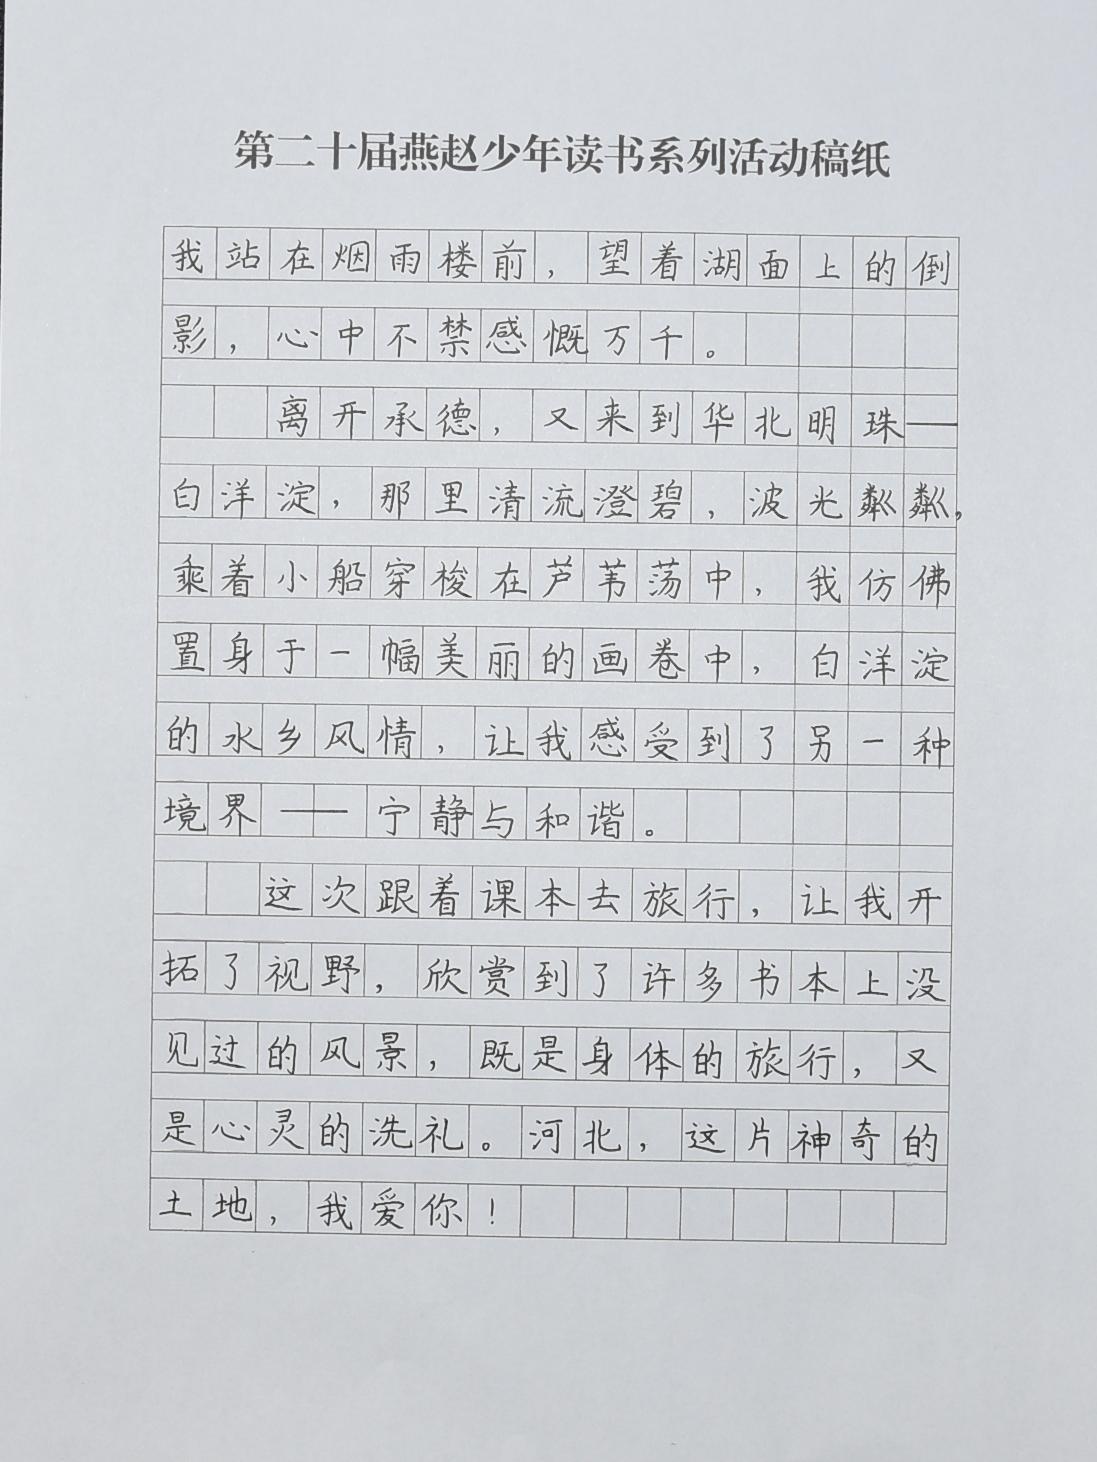 第二十届燕赵少年读书系列活动稿纸
我站在烟雨楼前，望着湖面上的倒
影，心中不禁感慨万千。
离开承德，又来到华北明珠——
白洋淀，那里清流澄碧，波光粼粼，
乘着小船穿梭在芦苇荡中，我仿佛
置身于一幅美丽的画卷中，白洋淀
的水乡风情，让我感受到了另一种
境界——宁静与和谐。
这次跟着课本去旅行，让我开
拓了视野，欣赏到了许多书本上没
见过的风景，既是身体的旅行，又
是心灵的洗礼。河北，这片神奇的
土地，我爱你！